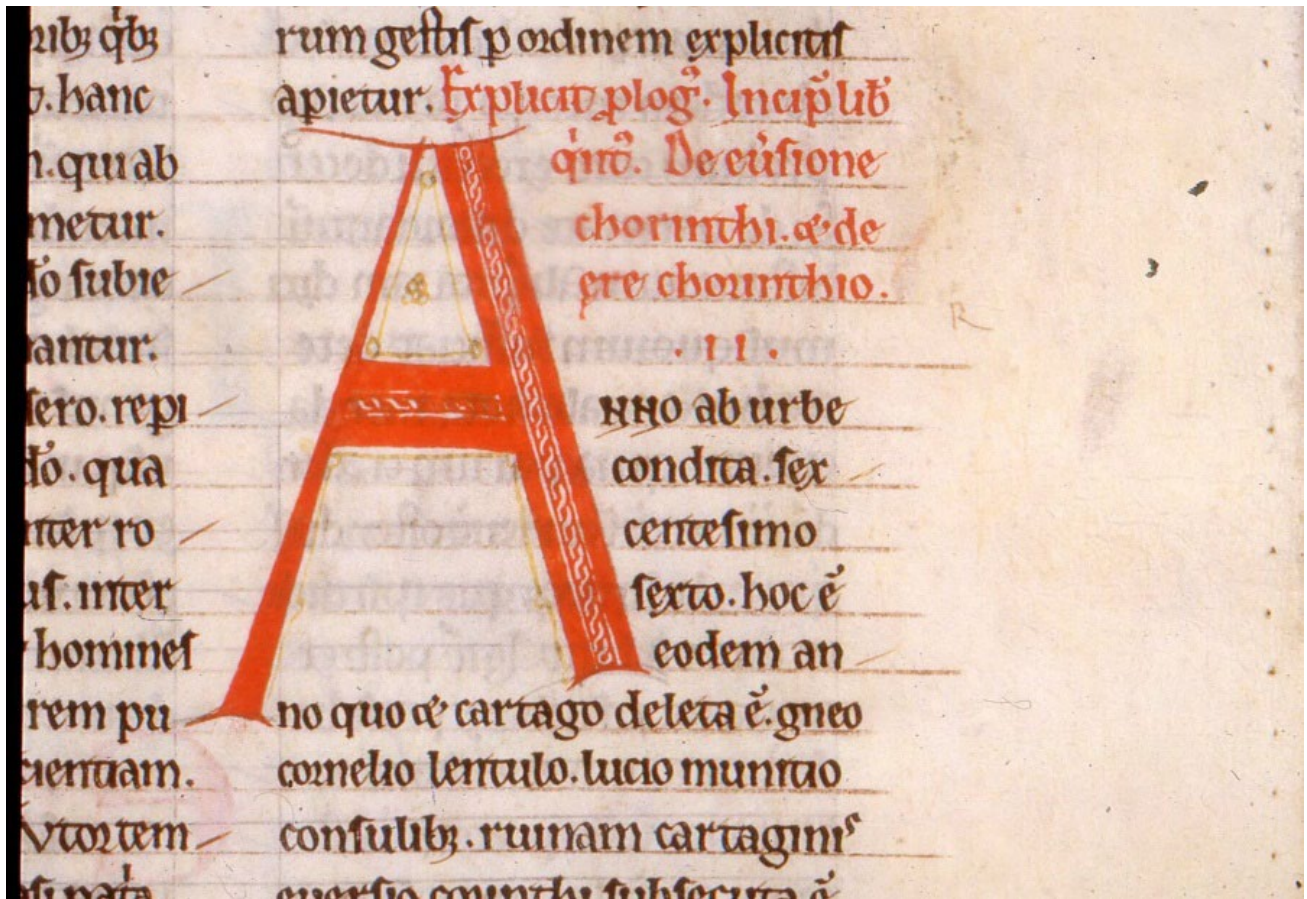 ribꝫ qͥbꝫ
ꝺ. hanc
n. qui ab
metur.
do subie
antur.
sero. repi
do. qua
nter ro
us. inter
homines
rem pu
cientiam.
Vtor tem
rum gestis ꝑ ordinem explicitis
apietur. Explicit ꝓlogꝰ. Incip̅ lib̅
qͥntꝰ. De eu̅sione
chorinthi. & de
ere chorinthio.
.II.
ANNO ab urbe
condita. sex
centesimo
sexto. hoc ē
eodem an
no quo & cartago deleta ē. gneo
cornelio lentulo. lucio munitio
consulibꝫ. ruinam cartaginis
euersio corinthi subsecuta ē